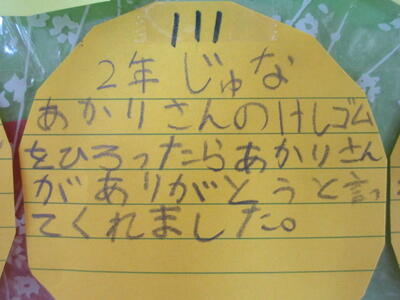 111
2年 じゅな
あかりさんのけしゴム
をひろったらあかりさん
がありがとうと言っ
てくれました。